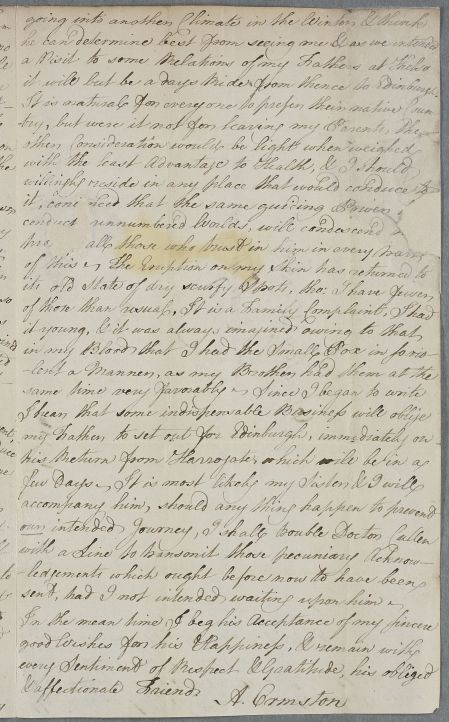 going into another Climate in the Winter, & thinks
he can determine best from seeing me & as we intended
a Visit to some Relations of my Fathers at Kelso
it will be but a days Ride from thence to Edinburgh
It is natural for everyone to prefer their native Coun-
try, but were it not for leaving my Parents, the
other Consideration would be light when weighed
with the least Advantage to Health, & I should
willingly reside in any place that would conduce to
it, con ced that the same guiding Power
conduct unnumbered Worlds, will condescend
all those who trust in him in every
of this. The Eruption on my Skin has returned to
its old State of dry scurfy Spots, tho: I have fewer
of them than usual, It is a Family Complaint, I had
it young, & it was always imagined owing to that
in my Blood that I had the Small Pox in so vio-
-lent a Manner, as my Brother had them at the
same time very favorably. Since I began to write
I hear that some indispensable Business will oblige
my Father to set out for Edinburgh, immediately on
his Return from Harrogate, which will be in a
few Days. It is most likely my Sister & I will
accompany him, should any thing happen to prevent
our intended Journey, I shall trouble Doctor Cullen
with a Line to transmit those pecuniary Acknow-
-ledgements which ought before now to have been
sent, had I not intended waiting upon him.
In the mean time I beg his Acceptance of my sincere
good Wishes for his Happiness, & remain with
every Sentiment of Respect & Gratitude, his obliged
& affectionate Friend
A. Ormston